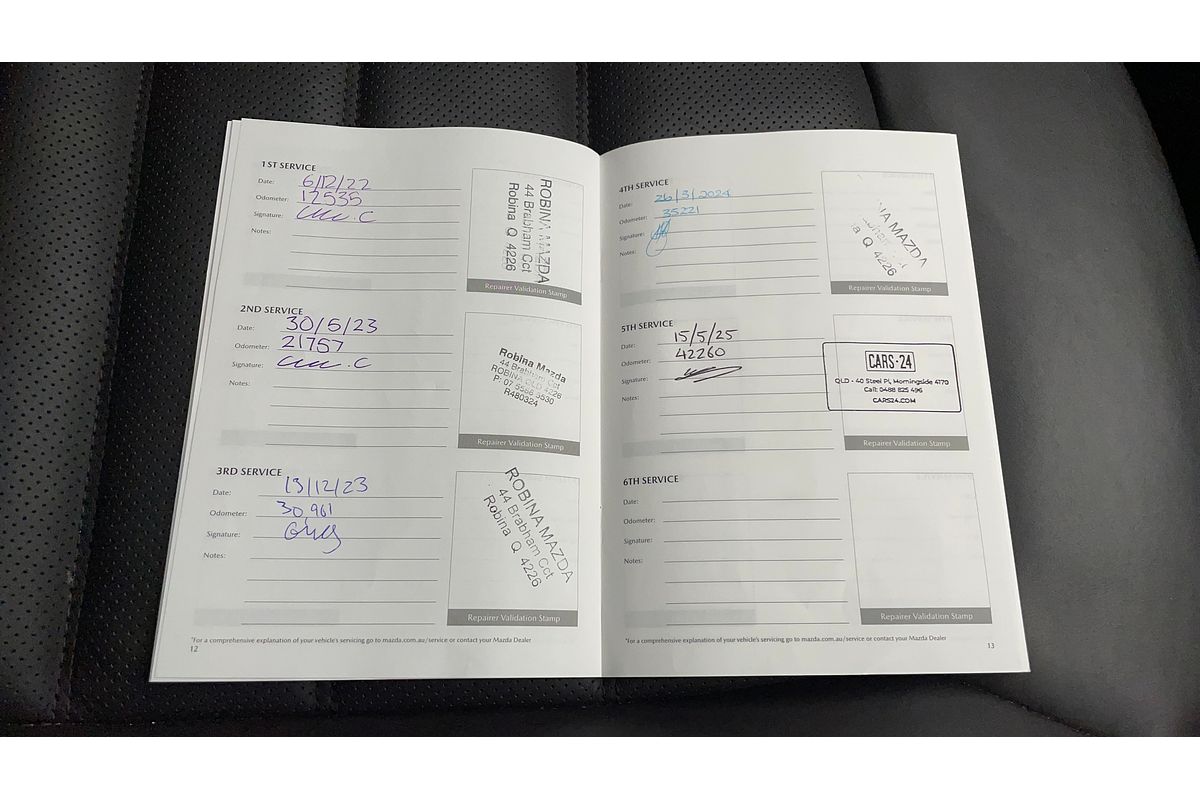 1ST SERVICE
Date: 6/12/22
Odometer: 12535
Signature:
Notes:
ROBINA MAZDA
44 Brabham Cct
Robina Q 4226
Repairer Validation Stamp
2ND SERVICE
Date: 30/5/23
Odometer: 21757
Signature:
Notes:
Robina Mazda
44 Brabham Cct
ROBINA QLD 4226
P: 07 5530
R480324
Repairer Validation Stamp
3RD SERVICE
Date: 13/12/23
Odometer: 30,961
Signature:
Notes:
ROBINA MAZDA
44 Brabham Cct
Robina Q 4226
Repairer Validation Stamp
*For a comprehensive explanation of your vehicle's servicing go to mazda.com.au/service or contact your Mazda Dealer
12
4TH SERVICE
Date: 26/3/2024
Odometer: 35221
Signature:
Notes:
MAZDA
Q 4226
Repairer Validation Stamp
5TH SERVICE
Date: 15/5/25
Odometer: 42260
Signature:
Notes:
CARS·24
QLD - 40 Steel Pl, Morningside 4170
Call: 0488 825 496
CARS24.COM
Repairer Validation Stamp
6TH SERVICE
Date:
Odometer:
Signature:
Notes:
Repairer Validation Stamp
*For a comprehensive explanation of your vehicle's servicing go to mazda.com.au/service or contact your Mazda Dealer
13